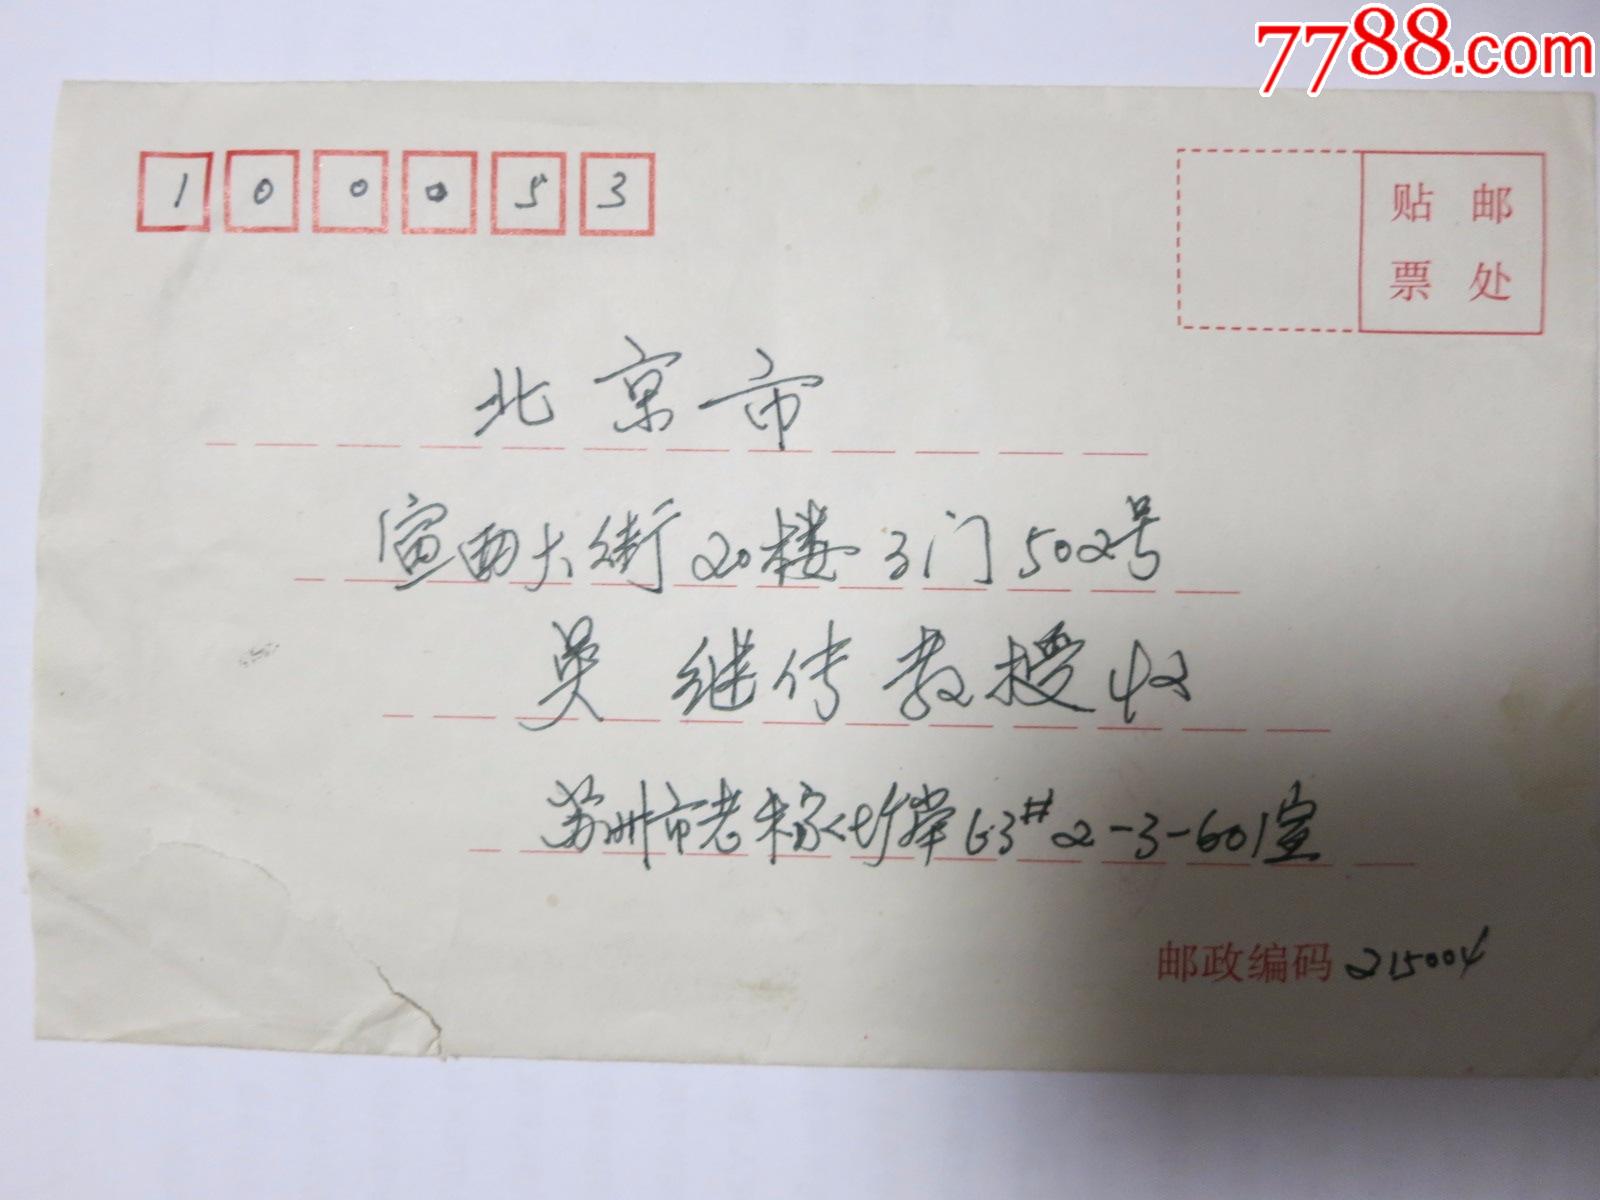 7788.com
100053
贴邮
票处
北京市
宣西大街20楼3门502号
吴继传教授收
苏州市老 63# 2-3-601室
邮政编码 215004